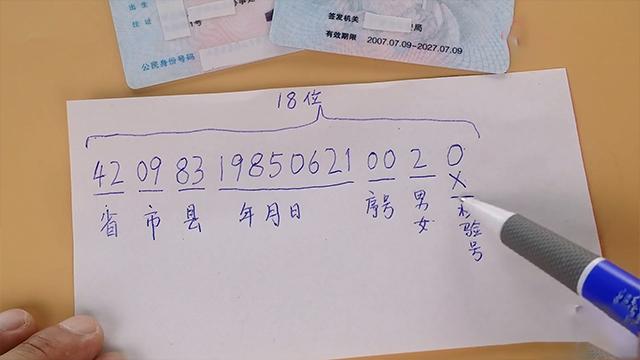 出生
住址
1号
公民身份号码
签发机关
局
有效期限 2007.07.09-2027.07.09
18位
42 09 83 19850621 00 2 0
X
省 市 县 年月日 序号 男女 检验号